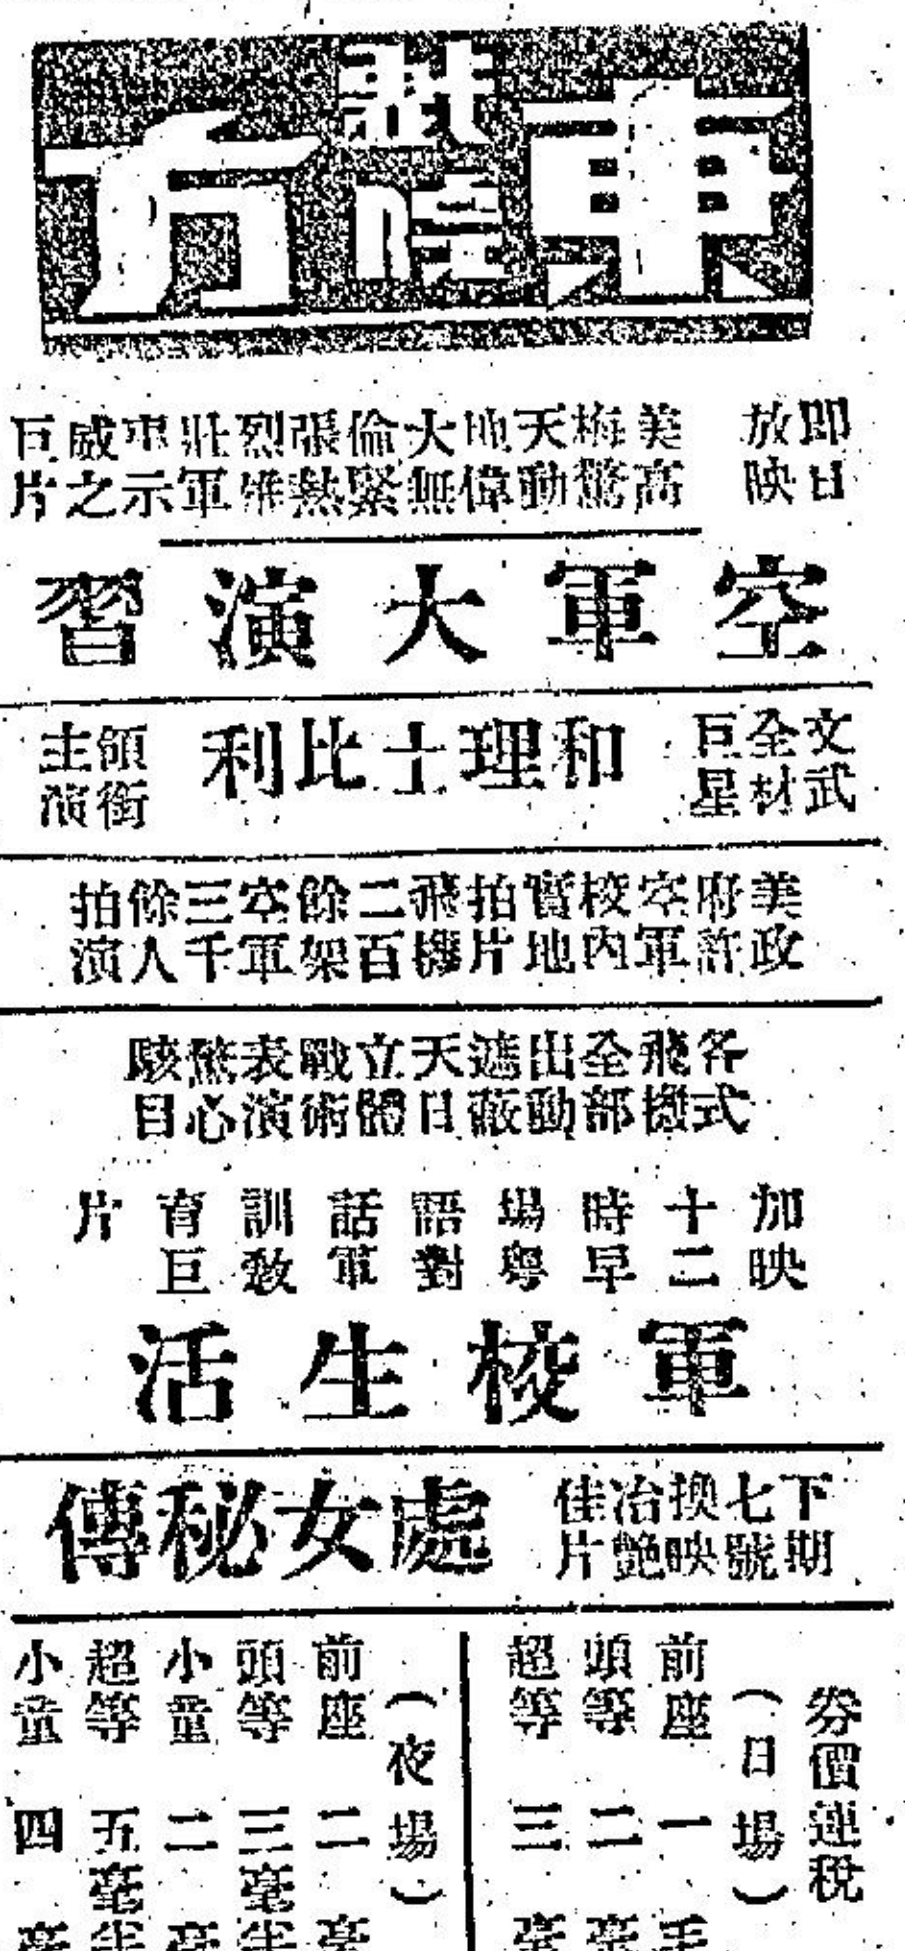 東方戲院
即日放映
美高梅驚天動地偉大無倫緊張熱烈雄壯軍事示威之巨片
空軍大演習
文武全材巨星
和理士比利
領銜主演
美政府許空軍校內實地拍片飛機二百餘架空軍三千餘人拍演
各式飛機全部出動遮蔽天日立體戰術表演驚心駭目
加映十二時早場粵語對話軍訓教育巨片
軍校生活
下期七號換映冶艷佳片
處女秘傳
券價連稅
(日場)
前座一毛
頭等二毫
超等三毫
(夜場)
前座二毫
頭等三毫半
小童二毫
超等五毫半
小童四毫